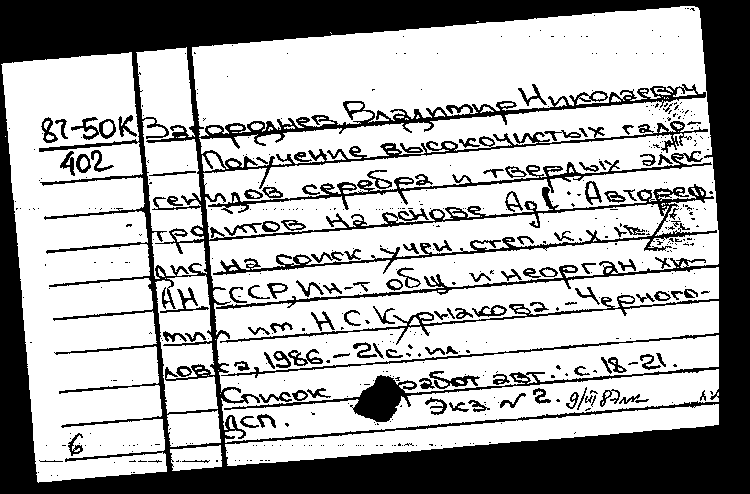 87-50К Загороднев, Владимир Николаевич
402 Получение высокочистых гало-
генидов серебра и твердых элек-
тролитов на основе Ag : Автореф.
дис. на соиск. учен. степ. к. х. н.
АН СССР, Ин-т общ. и неорган. хи-
мии им. Н.С. Курнакова. - Черного-
ловка, 1986. - 21с.: ил.
Список работ авт.: с. 18-21.
ДСП. Экз № 2.
6